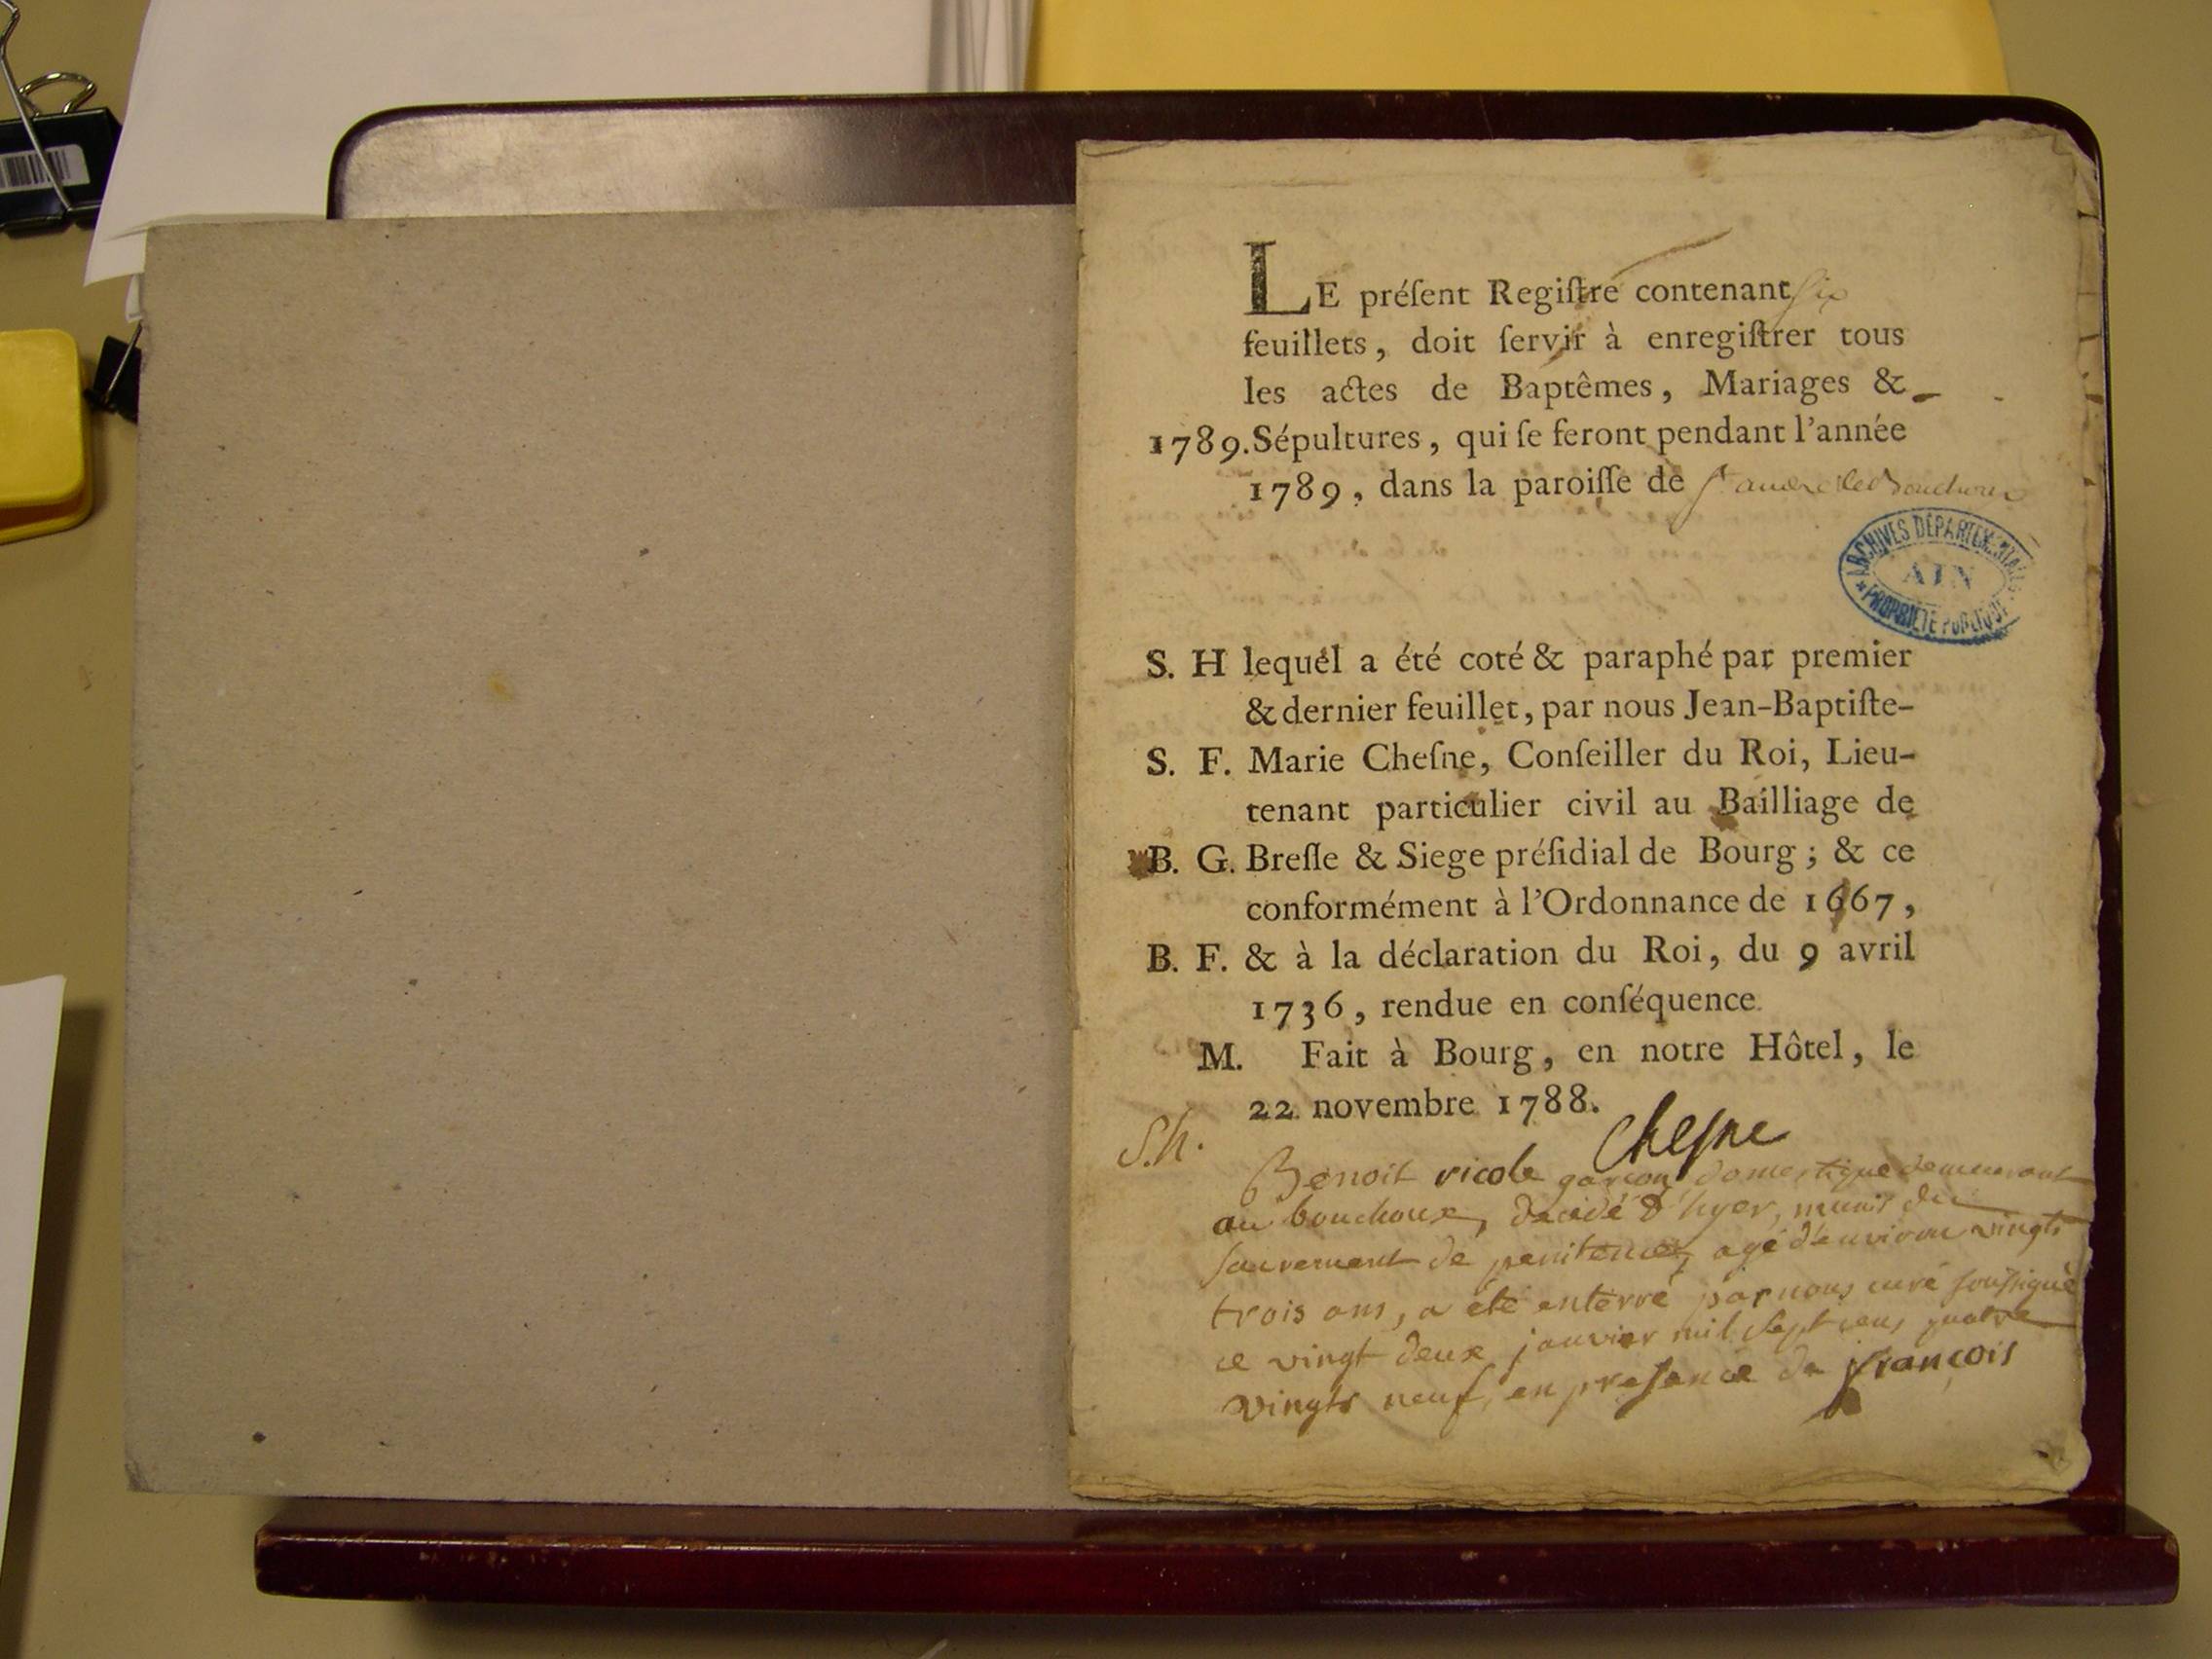 LE préſent Regiſtre contenant six
feuillets, doit ſervir à enregiſtrer tous
les actes de Baptêmes, Mariages &
1789. Sépultures, qui ſe feront pendant l'année
1789, dans la paroiſſe de St andre le Bouchoux
ARCHIVES DÉPARTEMENTALES
AIN
* PROPRIÉTÉ PUBLIQUE *
S. H lequel a été coté & paraphé par premier
& dernier feuillet, par nous Jean-Baptiſte-
S. F. Marie Cheſne, Conſeiller du Roi, Lieu-
tenant particulier civil au Bailliage de
B. G. Breſſe & Siege préſidial de Bourg ; & ce
conformément à l'Ordonnance de 1667,
B. F. & à la déclaration du Roi, du 9 avril
1736, rendue en conſéquence
M. Fait à Bourg, en notre Hôtel, le
22 novembre 1788.
Chesne
S. h. Benoit ricole garçon domestique demeurant
au bouchoux, décédé d'hyer, munis du
sacrement de penitence, agé d'environ vingts
trois ans, a été enterré par nous curé soussigné
ce vingt deux janvier mil sept cens quatre
vingts neuf, en presence de françois